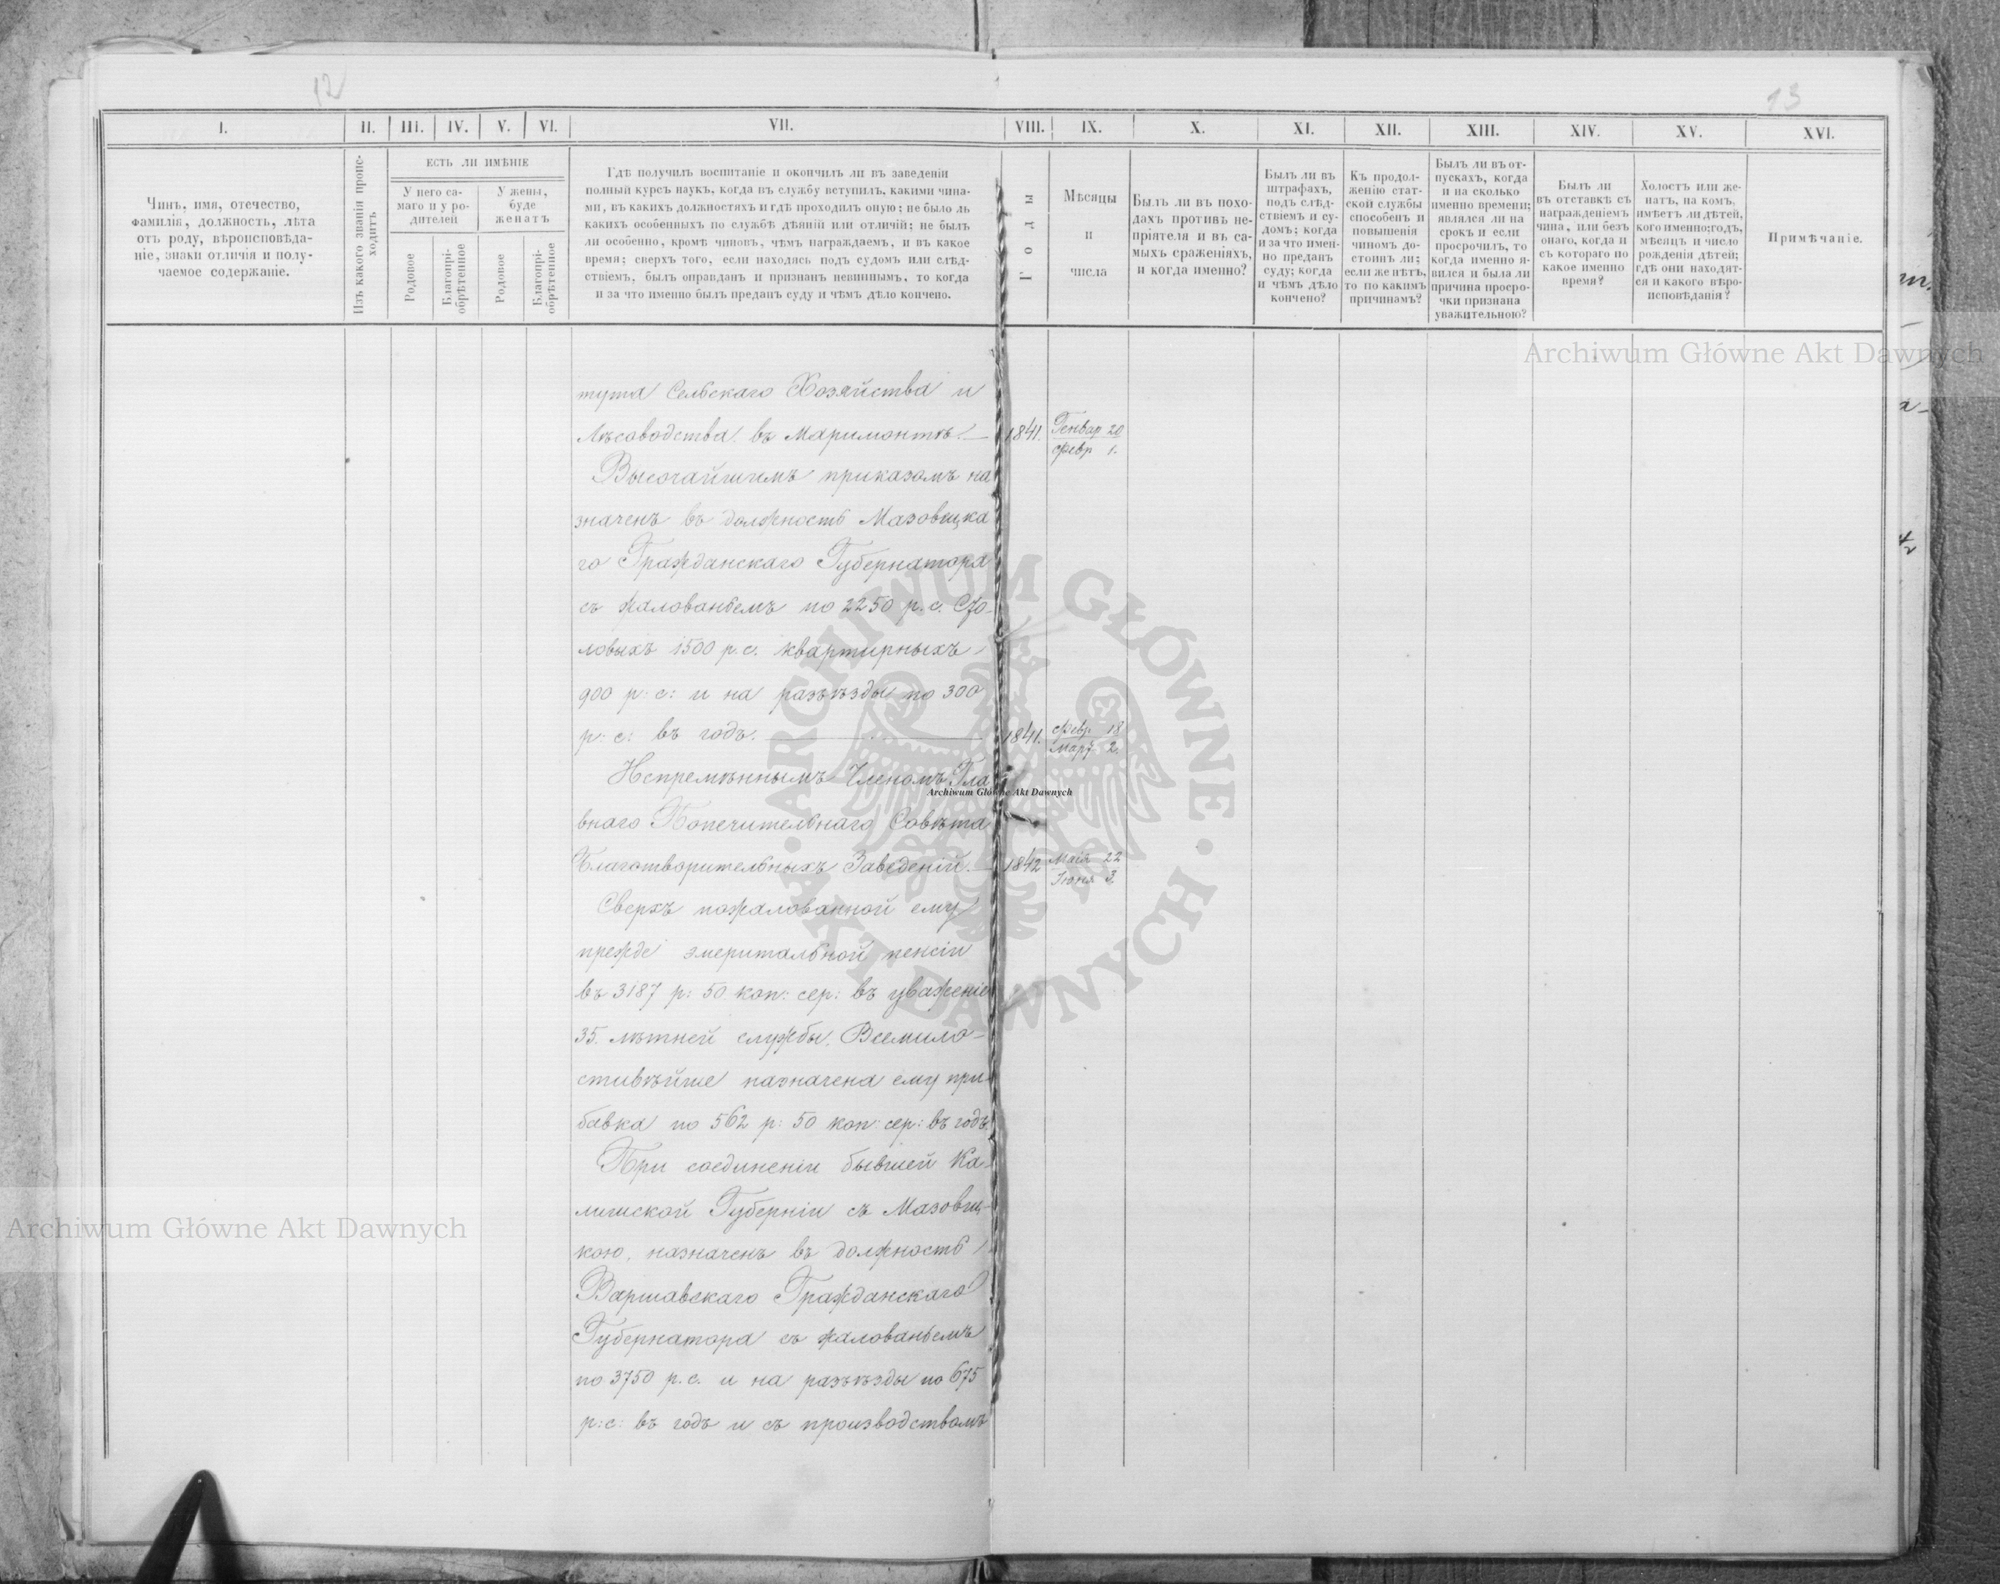 12
13
I.
II.
III.
IV.
V.
VI.
VII.
VIII.
IX.
X.
XI.
XII.
XIII.
XIV.
XV.
XVI.
Чинъ, имя, отечество,
фамилія, должность, лѣта
отъ роду, вѣроисповѣда-
ніе, знаки отличія и полу-
чаемое содержаніе.
Изъ какого званія проис-
ходитъ
ЕСТЬ ЛИ ИМѢНІЕ
У него са-
маго и у ро-
дителей
У жены,
буде
женатъ
Родовое
Благопрі-
обрѣтенное
Родовое
Благопрі-
обрѣтенное
Гдѣ получилъ воспитаніе и окончилъ ли въ заведеніи
полный курсъ наукъ, когда въ службу вступилъ, какими чина-
ми, въ какихъ должностяхъ и гдѣ проходилъ оную; не было ль
какихъ особенныхъ по службѣ дѣяній или отличій; не былъ
ли особенно, кромѣ чиновъ, чѣмъ награждаемъ, и въ какое
время; сверхъ того, если находясь подъ судомъ или слѣд-
ствіемъ, былъ оправданъ и признанъ невиннымъ, то когда
и за что именно былъ преданъ суду и чѣмъ дѣло кончено.
Годы
Мѣсяцы
и
числа
Былъ ли въ похо-
дахъ противъ не-
пріятеля и въ са-
мыхъ сраженіяхъ,
и когда именно?
Былъ ли въ
штрафахъ,
подъ слѣд-
ствіемъ и су-
домъ; когда
и за что имен-
но преданъ
суду; когда
и чѣмъ дѣло
кончено?
Къ продол-
женію стат-
ской службы
способенъ и
повышенія
чиномъ до-
стоинъ ли;
если же нѣтъ,
то по какимъ
причинамъ?
Былъ ли въ от-
пускахъ, когда
и на сколько
именно времени;
являлся ли на
срокъ и если
просрочилъ, то
когда именно я-
вился и была ли
причина просро-
чки признана
уважительною?
Былъ ли
въ отставкѣ съ
награжденіемъ
чина, или безъ
онаго, когда и
съ котораго по
какое именно
время?
Холостъ или же-
натъ, на комъ,
имѣетъ ли дѣтей,
кого именно; годъ,
мѣсяцъ и число
рожденія дѣтей;
гдѣ они находят-
ся и какого вѣро-
исповѣданія?
Примѣчаніе.
тута Сельскаго Хозяйства и
Лѣсоводства въ Маримонтѣ. — 1841. Генвар 20
Февр 1.
Высочайшимъ приказомъ на
значенъ въ должность Мазовецка
го Гражданскаго Губернатора
съ жалованьемъ по 2250 р. с. Сто-
ловыхъ 1500 р. с. квартирныхъ
900 р: с: и на разъѣзды по 300
р: с: въ годъ. — 1841. Февр. 18
Март. 2.
Непремѣннымъ Членомъ Гла
внаго Попечительнаго Совѣта
Благотворительныхъ Заведеній. — 1842 Маія 22
Іюня 3.
Сверхъ пожалованной ему
прежде эмеритальной пенсіи
въ 3187 р: 50 коп: сер: въ уваженіе
35. лѣтней службы, Всемило-
стивѣйше назначена ему при
бавка по 562 р: 50 коп: сер: въ годъ.
При соединеніи бывшей Ка-
лишской Губерніи съ Мазовец-
кою, назначенъ въ должность
Варшавскаго Гражданскаго
Губернатора съ жалованьемъ
по 3750 р. с. и на разъѣзды по 675
р: с: въ годъ и съ производствомъ
Archiwum Główne Akt Dawnych
Archiwum Główne Akt Dawnych
Archiwum Główne Akt Dawnych
ARCHIWUM GŁÓWNE · AKT DAWNYCH ·